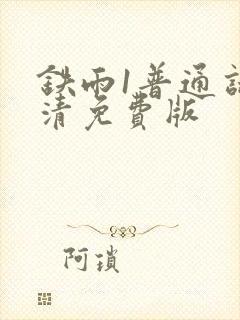 鉄雨1普通話
清免費版
阿瑣